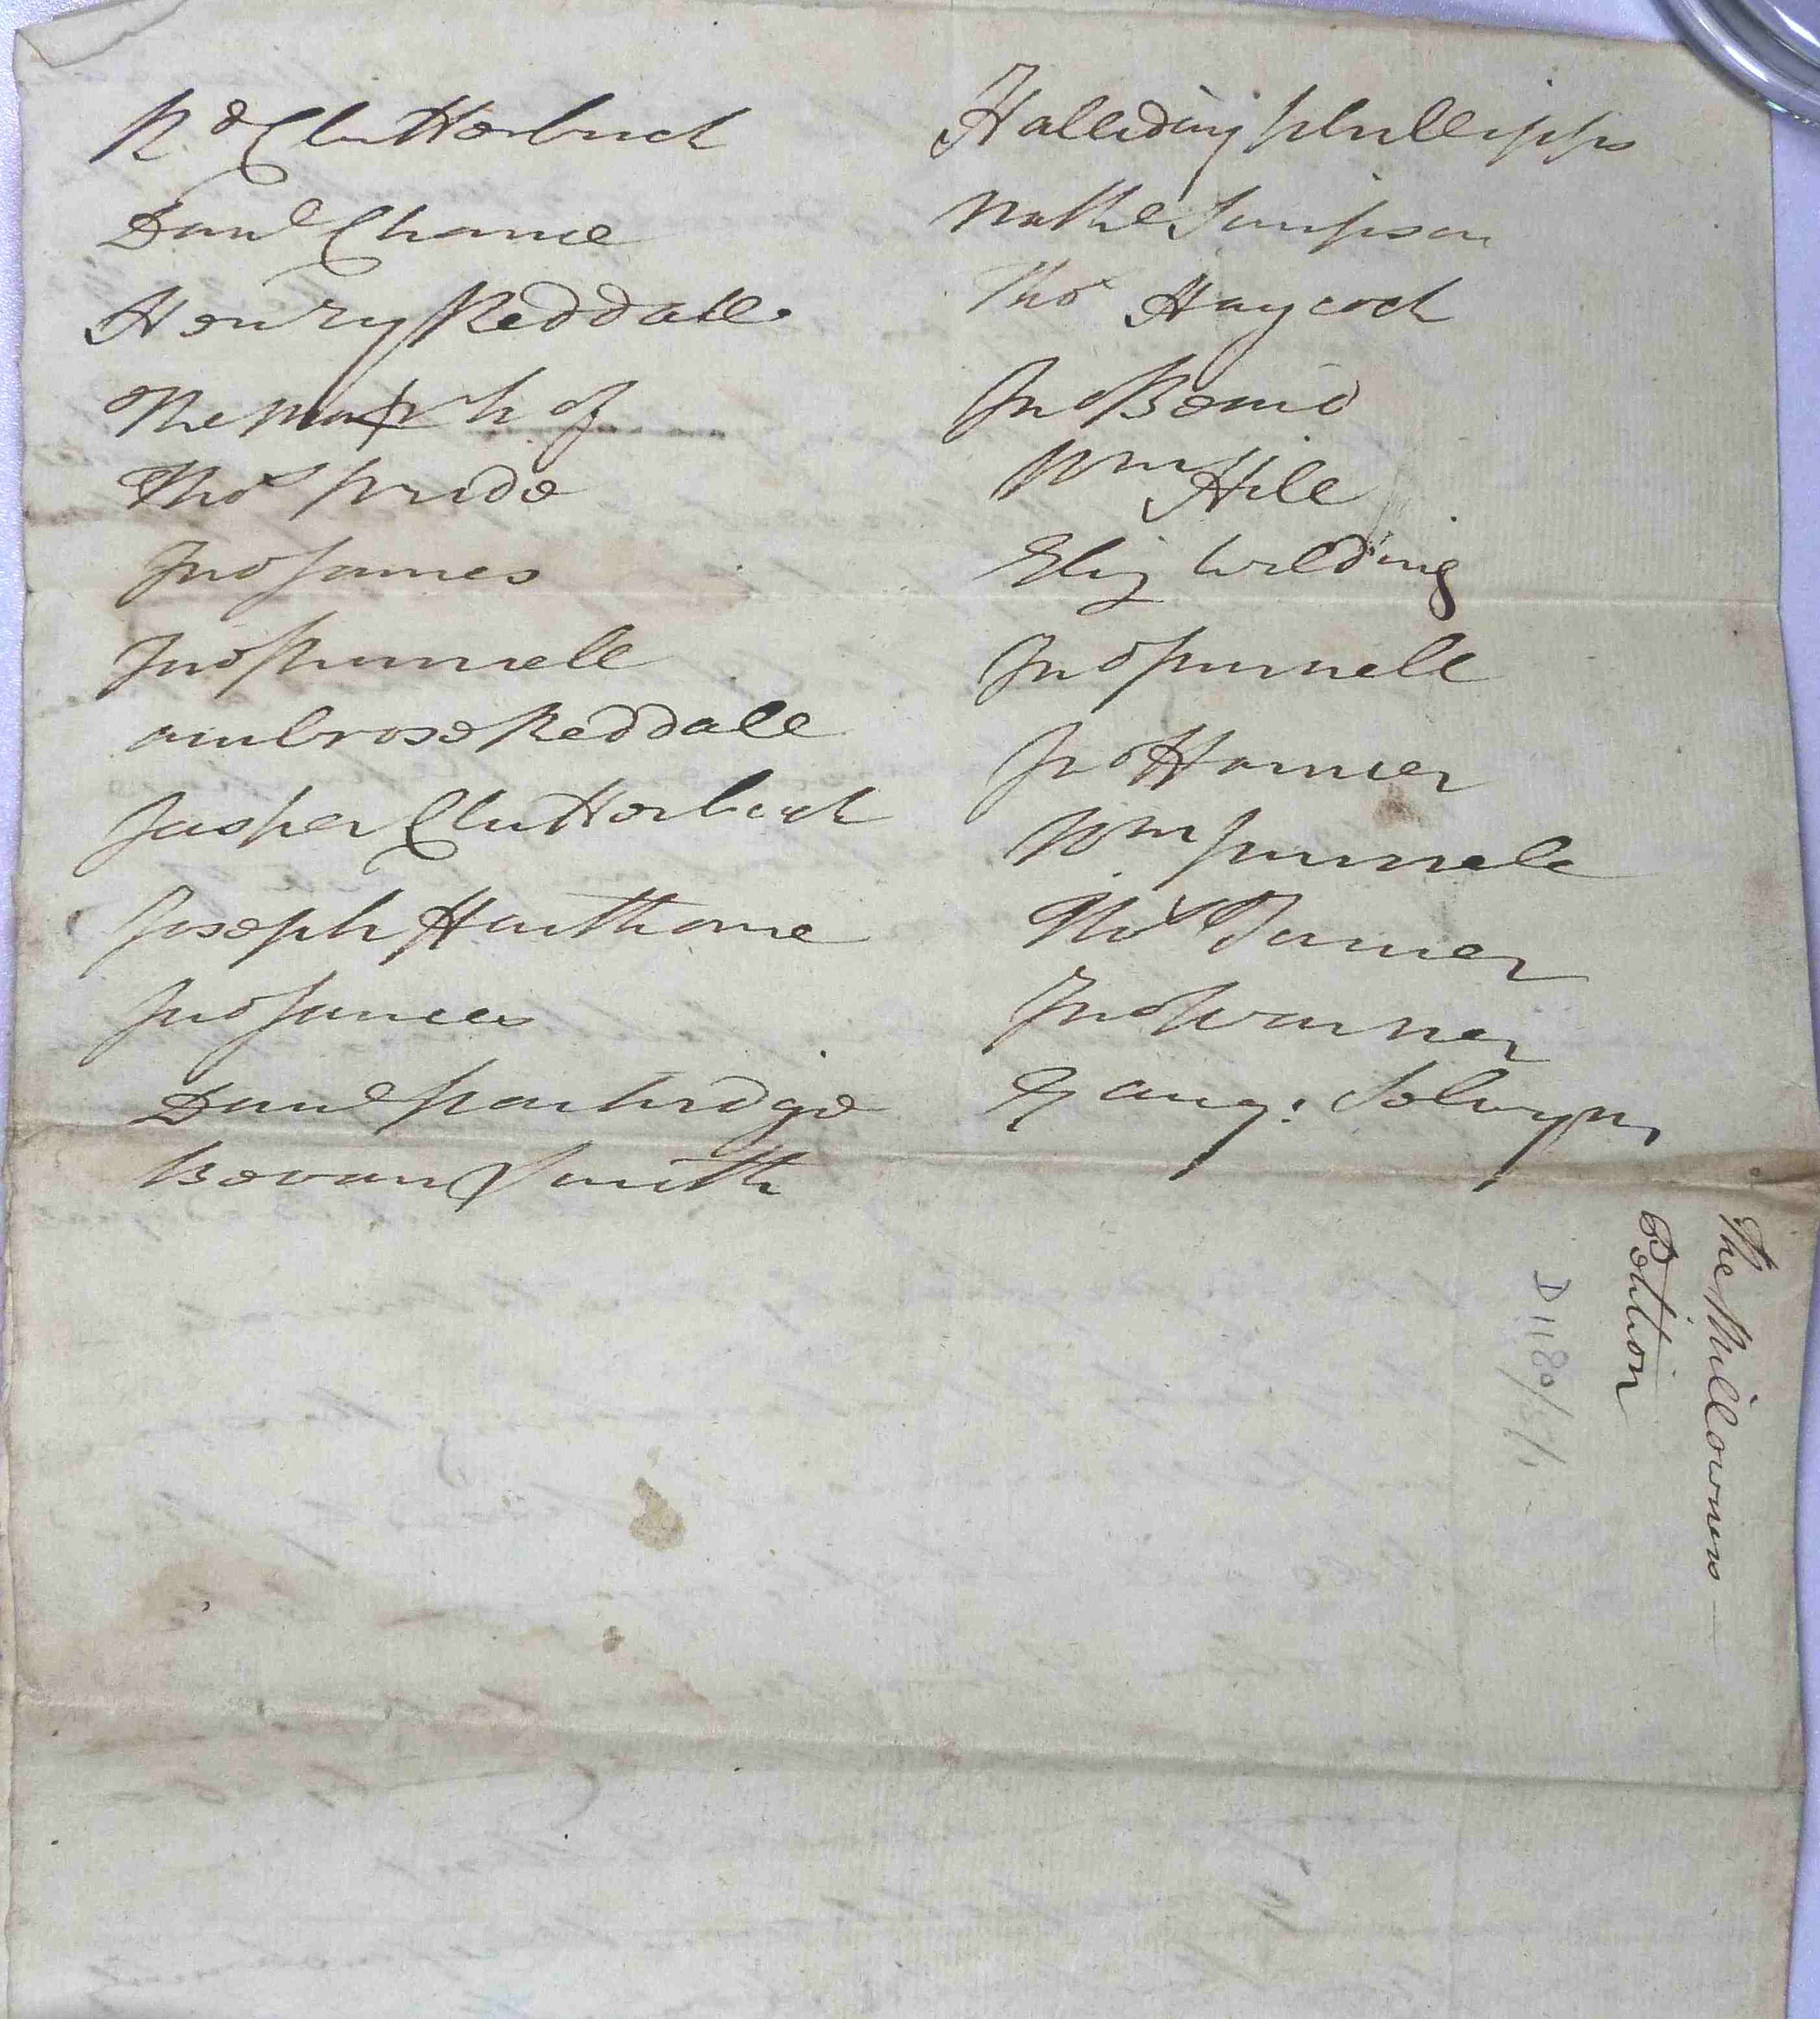 Rd Clutterbuck
Danl Chance
Henry Reddall
The mark of
Thos Pride
Jno James
Jno Purnell
ambrose Reddall
Jasper Clutterbuck
Joseph Hawthorne
Jno James
Danl Partridge
Bevan Smith
Halliday Phillipps
Nathl Simpson
Thos Haycock
Jno Beard
Wm Hill
Eliz Wilding
Jno Purnell
Jno Horner
Wm Purnell
Thos Turner
Jno Warner
G aug: Selwyn
The Millowners
Petition
D1180/5/1